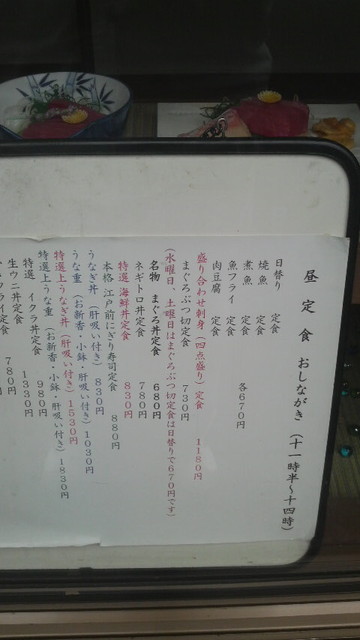 昼定食 おしながき (十一時半～十四時)
日替り 定食
焼魚 定食
煮魚 定食 各670円
魚フライ 定食
肉豆腐 定食
盛り合わせ刺身(四点盛り)定食 1180円
まぐろぶつ切定食 730円
(水曜日、土曜日はまぐろぶつ切定食は日替りで670円です)
名物 まぐろ丼定食 680円
ネギトロ丼定食 780円
特選 海鮮丼定食 830円
本格 江戸前にぎり寿司定食 880円
うなぎ丼(肝吸い付き) 830円
うな重(お新香・小鉢・肝吸い付き)1030円
特選上うなぎ丼(肝吸い付き)1530円
特選上うな重(お新香・小鉢・肝吸い付き)1830円
特選 イクラ丼定食 980円
生ウニ丼定食 1330円
フライ定食 780円